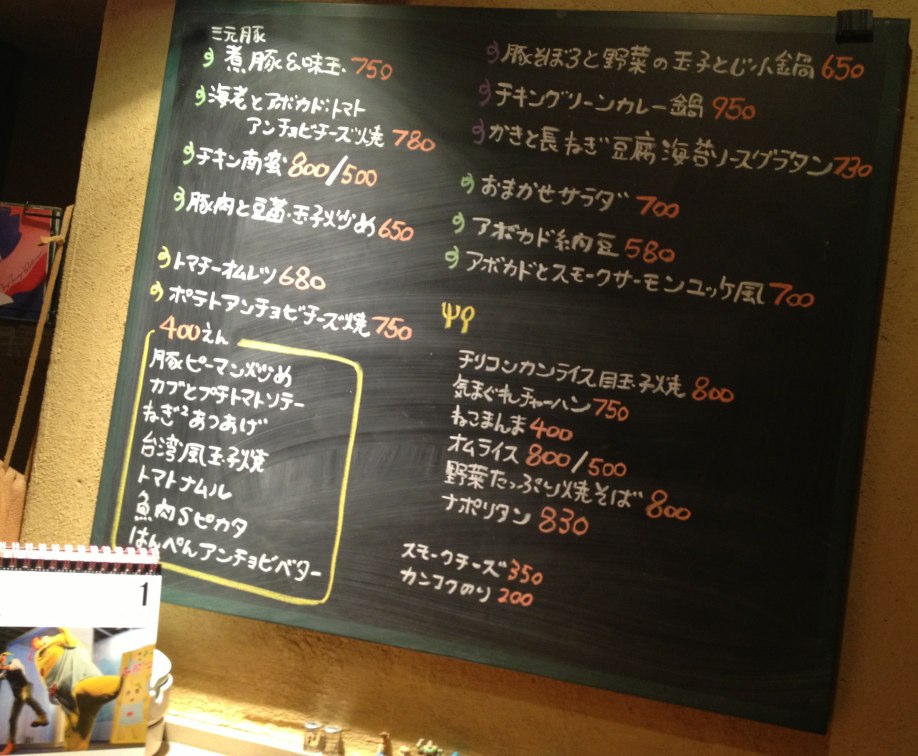 三元豚
煮豚&味玉 750
海老とアボカド・トマト
アンチョビチーズ焼 780
チキン南蜜 800/500
豚肉と豆苗・玉子炒め 650
トマチーオムレツ 680
ポテトアンチョビチーズ焼 750
400えん
豚ピーマン炒め
カブとプチトマトソテー
ねぎ²あつあげ
台湾風玉子焼
トマトナムル
魚肉Sピカタ
はんぺんアンチョビバター
豚そぼろと野菜の玉子とじ小鍋 650
チキングリーンカレー鍋 950
かきと長ねぎ豆腐海苔ソースグラタン 730
おまかせサラダ 700
アボカド納豆 580
アボカドとスモークサーモンユッケ風 700
チリコンカンライス目玉子焼 800
気まぐれチャーハン 750
ねこまんま 400
オムライス 800/500
野菜たっぷり焼そば 800
ナポリタン 830
スモークチーズ 350
カンコクのり 200
1